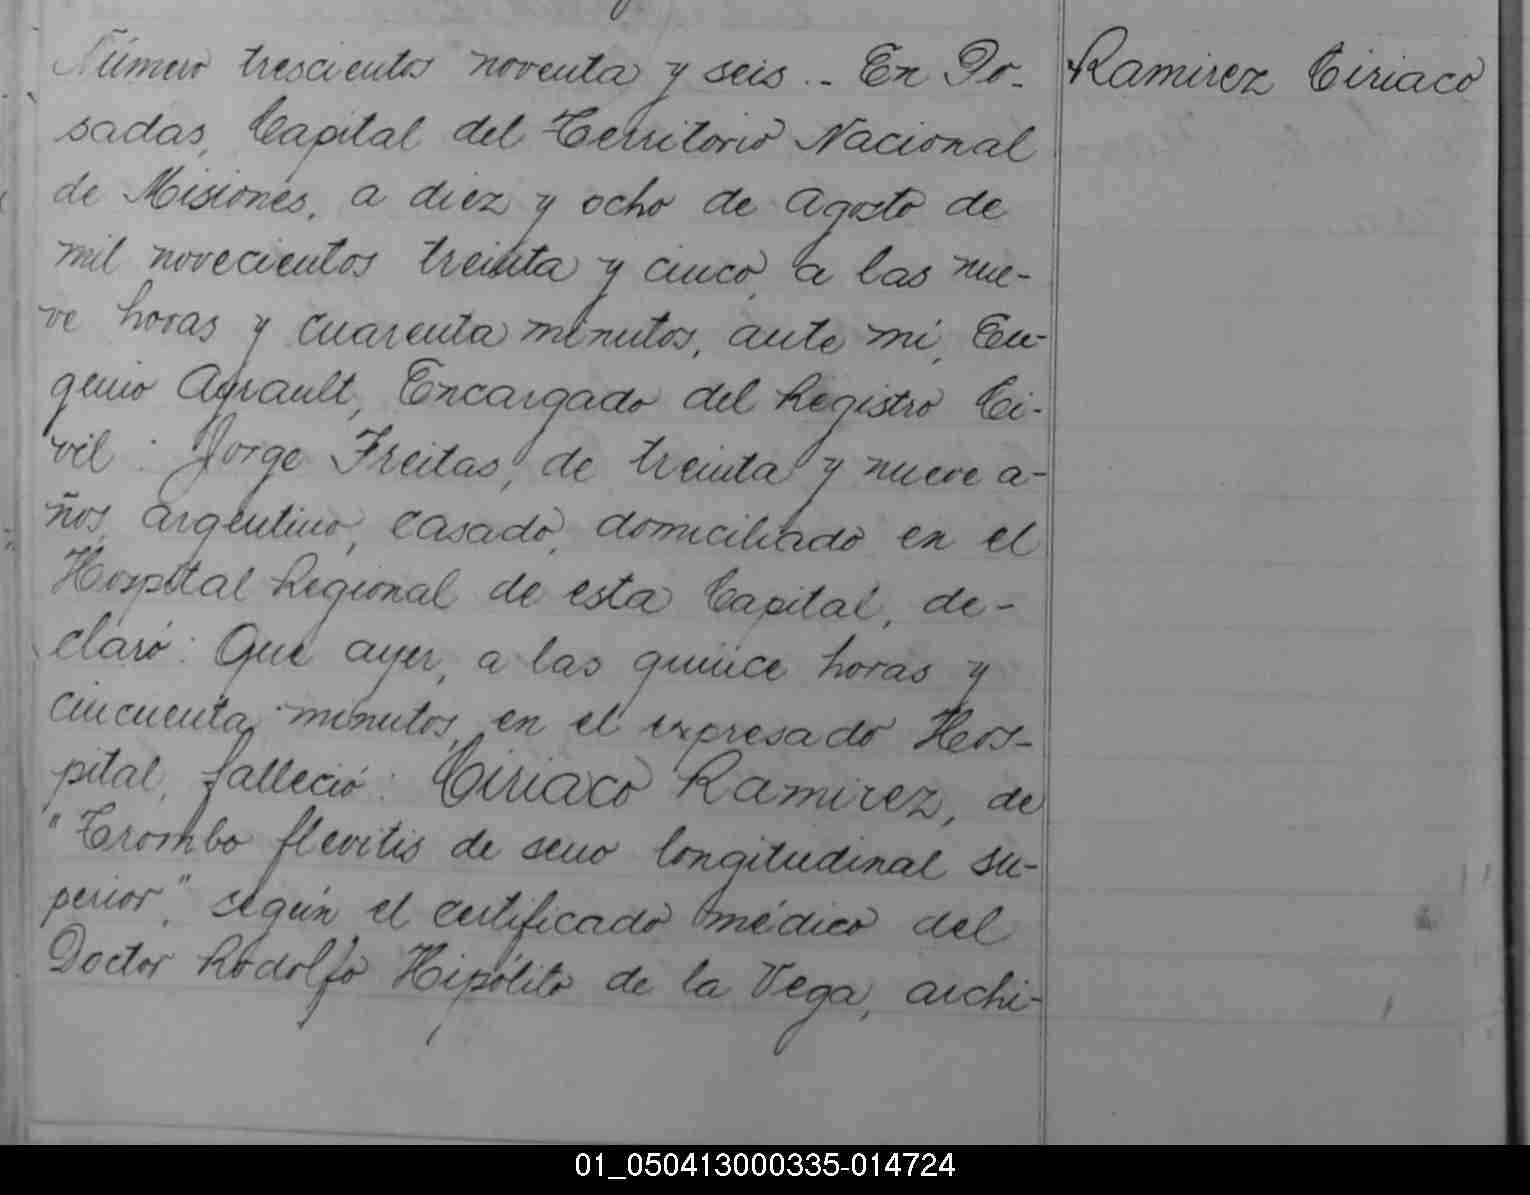 Número trescientos noventa y seis.. En Po-
sadas, Capital del Territorio Nacional
de Misiones, a diez y ocho de Agosto de
mil novecientos treinta y cinco, a las nue-
ve horas y cuarenta minutos, ante mí, Eu-
genio Ayrault, Encargado del Registro Ci-
vil: Jorge Freitas, de treinta y nueve a-
ños, argentino, casado, domiciliado en el
Hospital Regional de esta Capital, de-
claró: Que ayer, a las quince horas y
cincuenta minutos, en el expresado Hos-
pital, falleció: Ciriaco Ramirez, de
"Trombo flevitis de seno longitudinal su-
perior", según el certificado médico del
Doctor Rodolfo Hipólito de la Vega, archi-
Ramirez Ciriaco
01_050413000335-014724